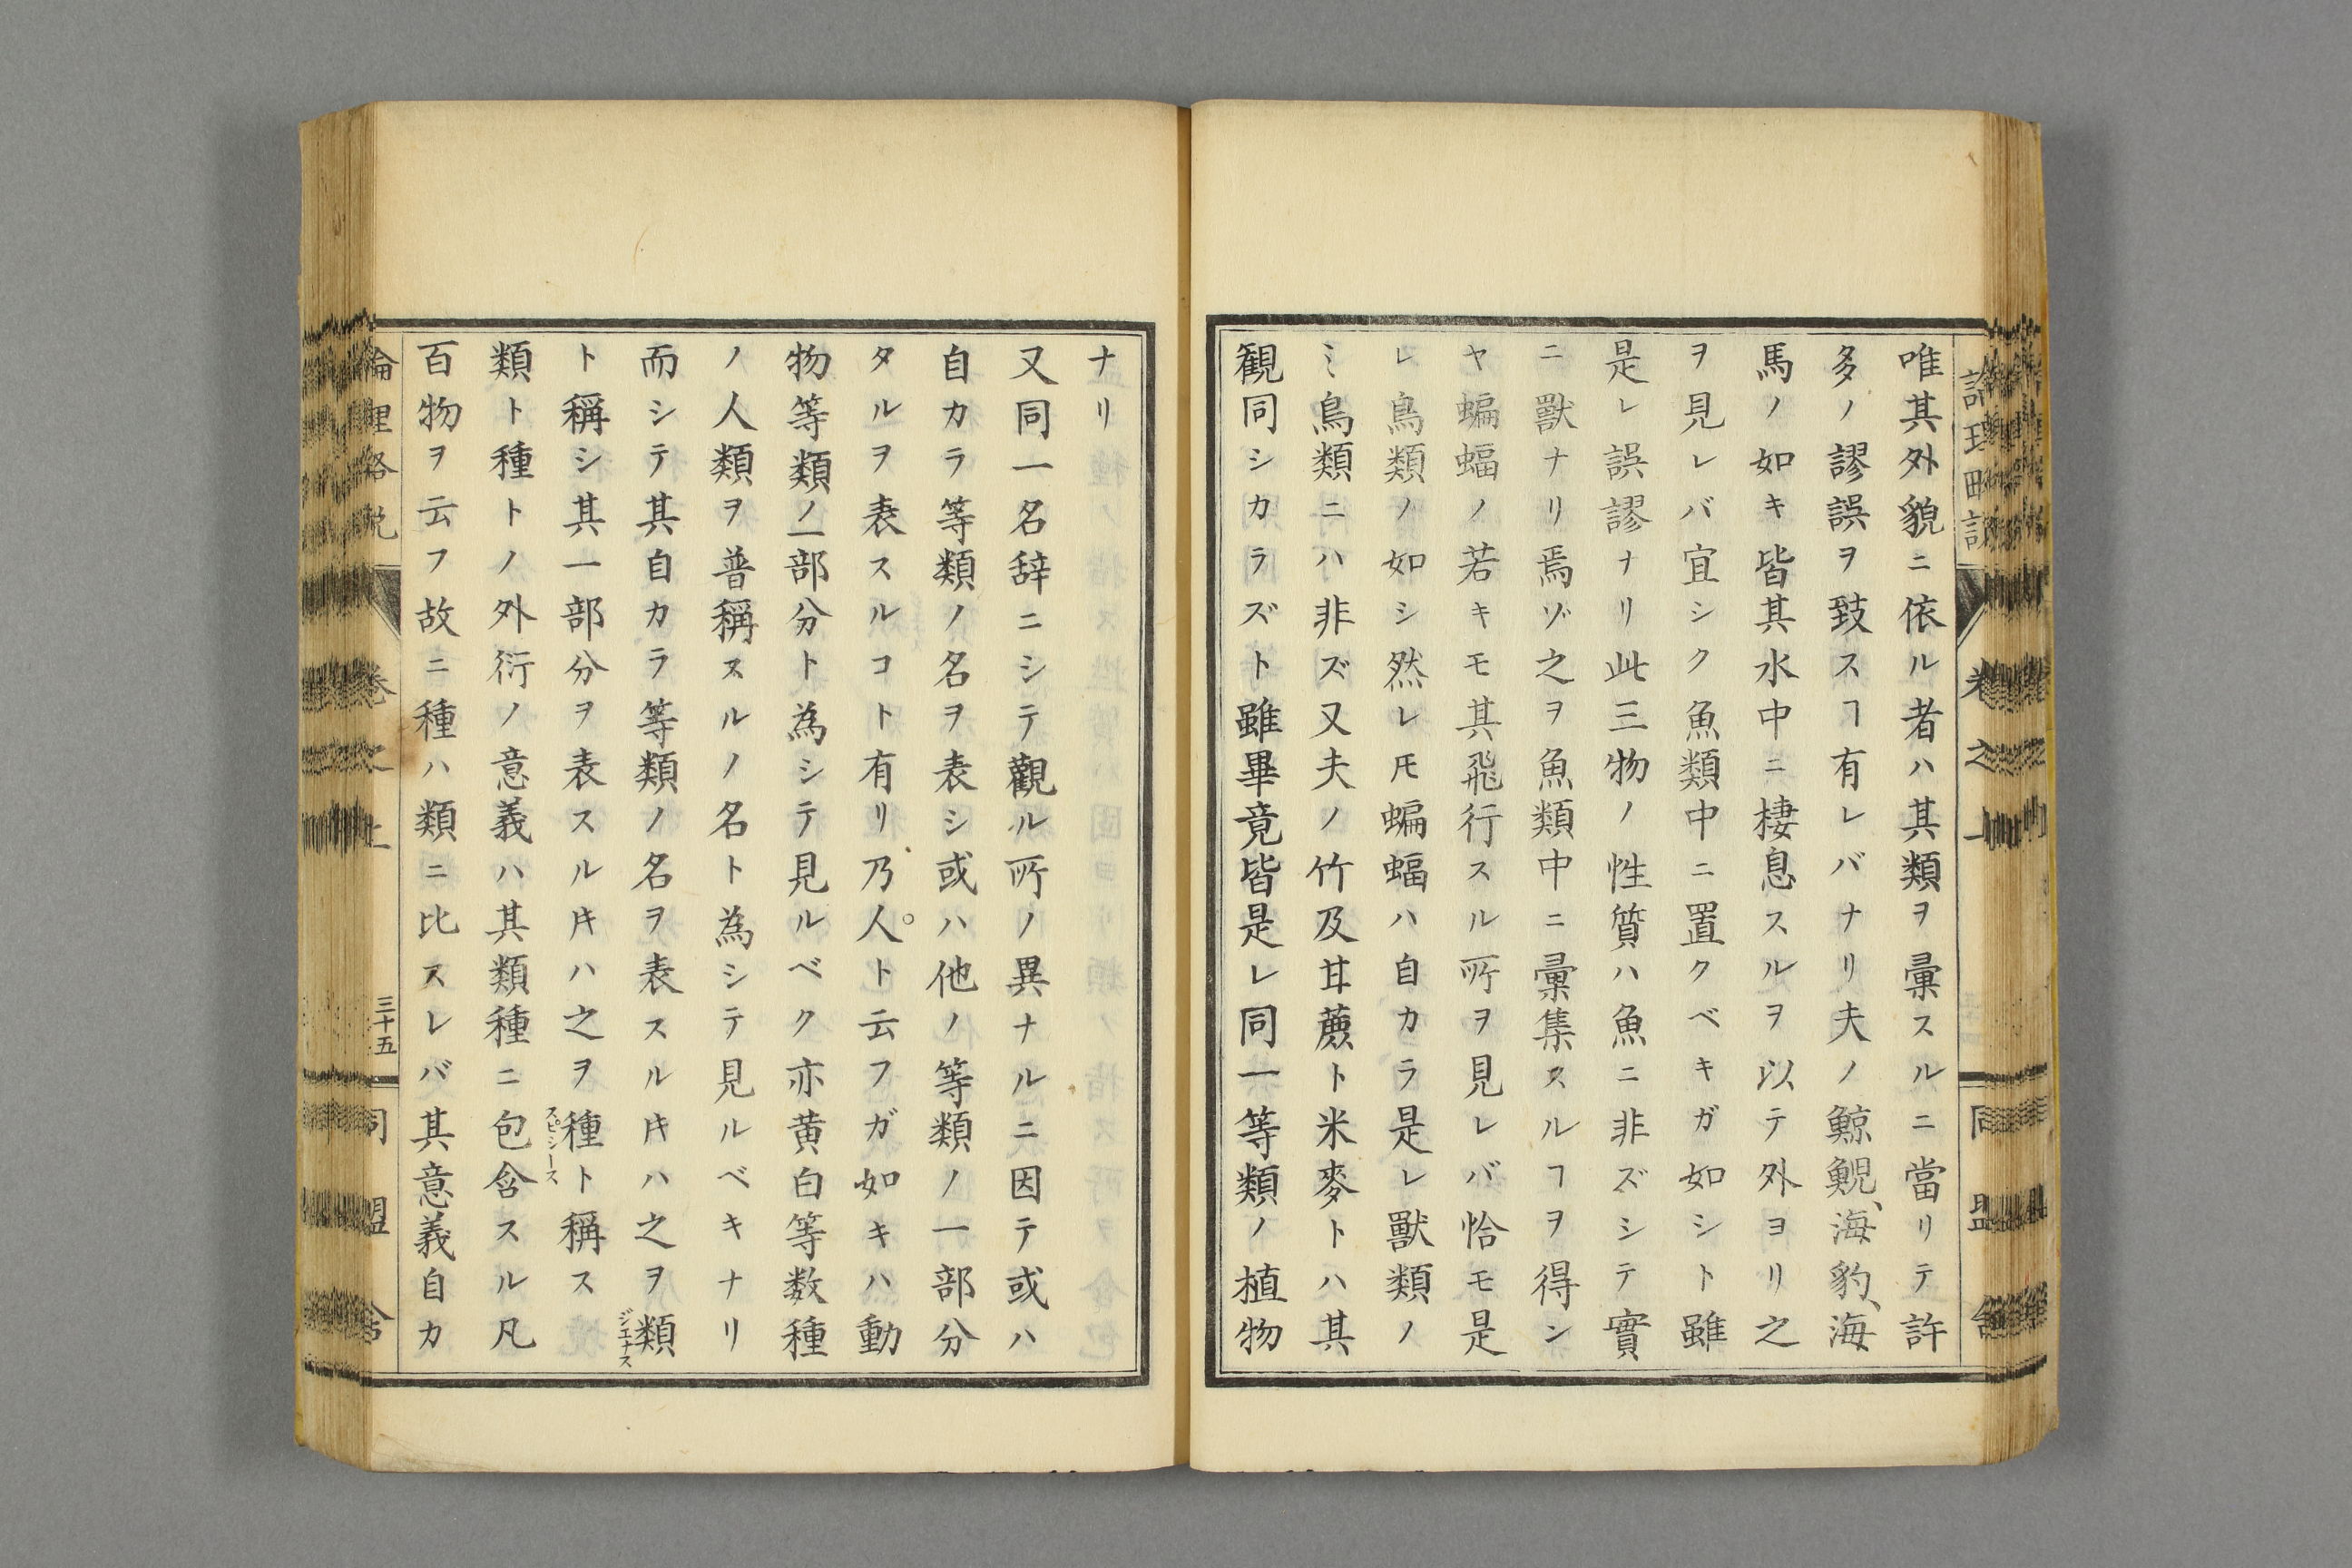 唯其外貌ニ依ル者ハ其類ヲ彙スルニ當リテ許
多ノ謬誤ヲ致スヿ有レバナリ夫ノ鯨鯢、海豹、海
馬ノ如キ皆其水中ニ棲息スルヲ以テ外ヨリ之
ヲ見レバ宜シク魚類中ニ置クベキガ如シト雖
是レ誤謬ナリ此三物ノ性質ハ魚ニ非ズシテ實
ニ獸ナリ焉ゾ之ヲ魚類中ニ彙集スルヿヲ得ン
ヤ蝙蝠ノ若キモ其飛行スル所ヲ見レバ恰モ是
レ鳥類ノ如シ然レ𪜈蝙蝠ハ自カラ是レ獸類ノ
ミ鳥類ニハ非ズ又夫ノ竹及甘蔗ト米麥トハ其
観同シカラズト雖畢竟皆是レ同一等類ノ植物
ナリ
又同一名辞ニシテ觀ル所ノ異ナルニ因テ或ハ
自カラ等類ノ名ヲ表シ或ハ他ノ等類ノ一部分
タルヲ表スルコト有リ乃人ト云フガ如キハ動
物等類ノ一部分ト為シテ見ルベク亦黄白等数種
ノ人類ヲ普稱スルノ名ト為シテ見ルベキナリ
而シテ其自カラ等類ノ名ヲ表スル𪜀ハ之ヲ類ジエナス
ト稱シ其一部分ヲ表スル𪜀ハ之ヲ種スピシースト稱ス
類ト種トノ外衍ノ意義ハ其類種ニ包含スル凡
百物ヲ云フ故ニ種ハ類ニ比スレバ其意義自カ
論理略説 卷之上 三十五 同盟舎